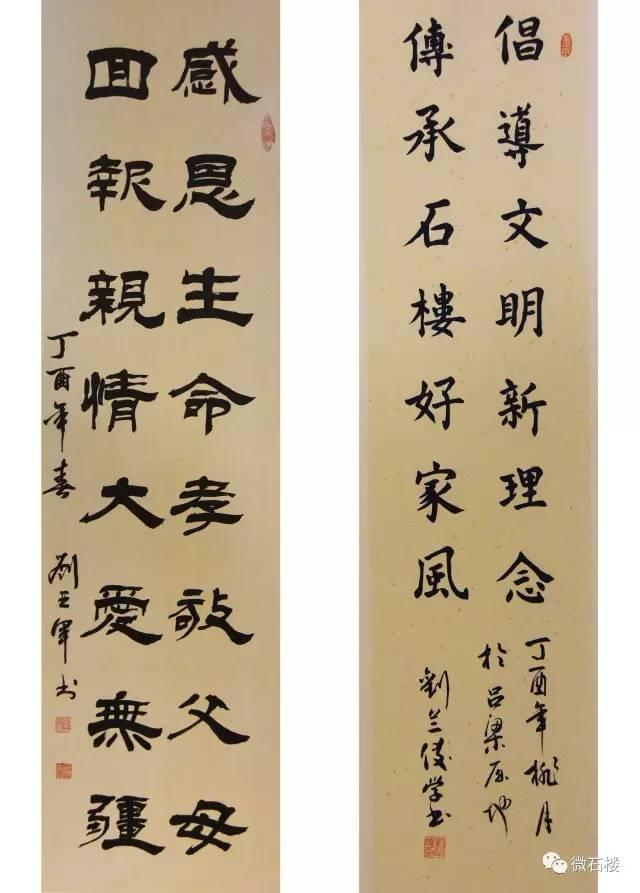 感恩生命孝敬父母
回報親情大愛無疆
丁酉年春 劉軍书
倡導文明新理念
傳承石樓好家風
丁酉年桃月
於吕梁地
劉兰俊学书
微石楼